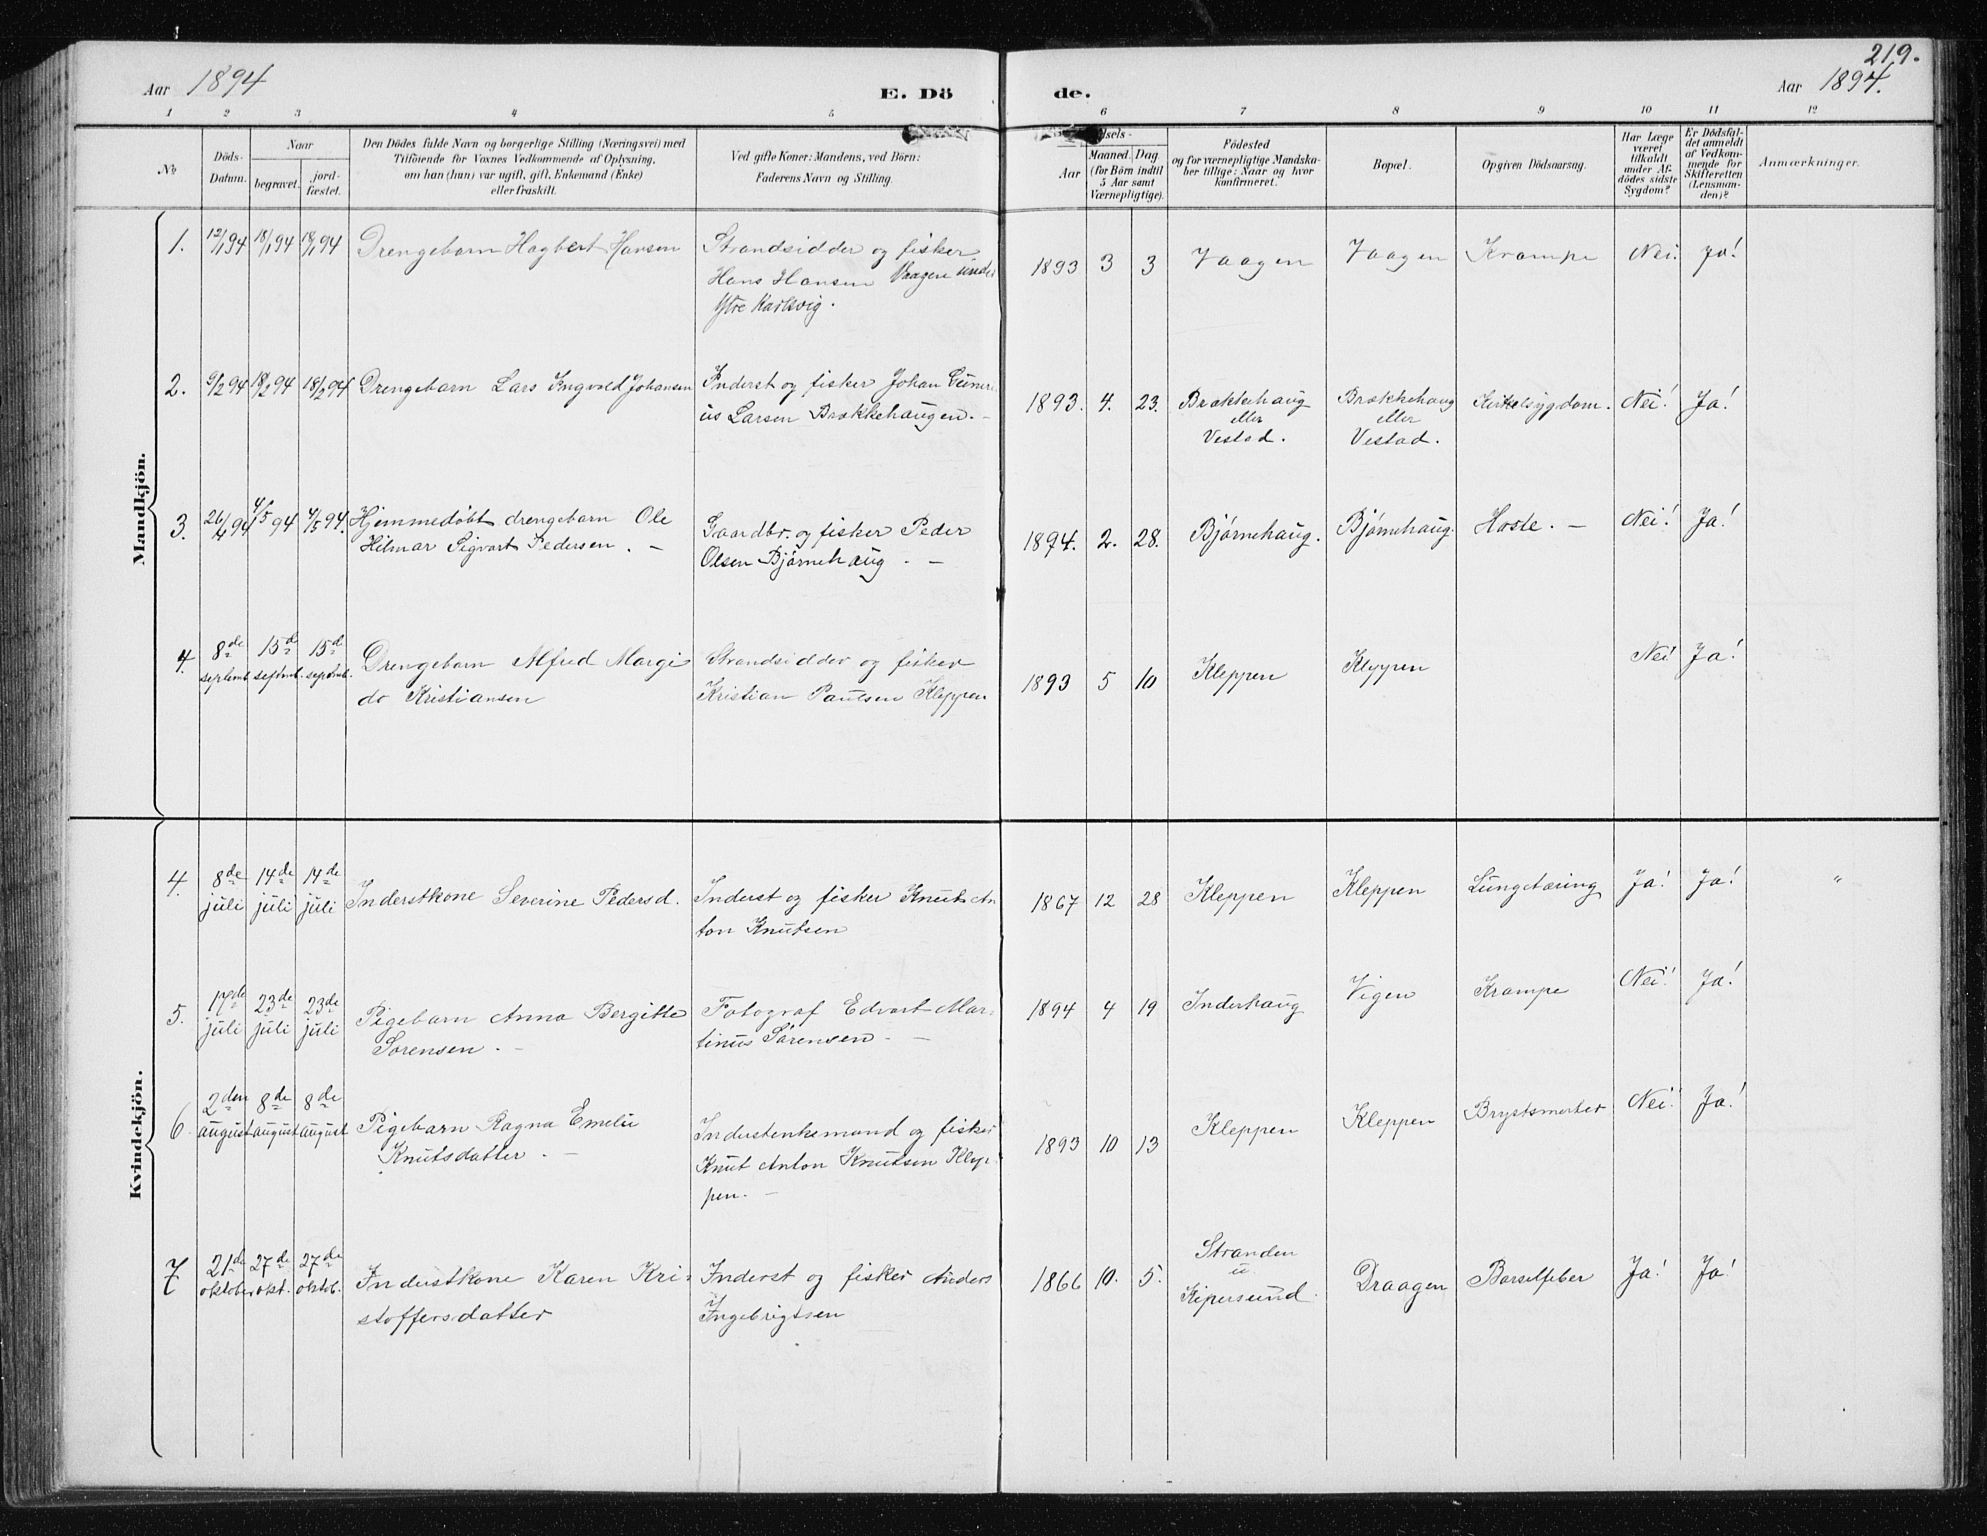 219.
Aar 1894
E. Dö
de.
Aar 1894.
1 2 3 4 5 6 7 8 9 10 11 12
No
Döds-
Datum.
Naar
begravet.
jord-
fæstet.
Den Dödes fulde Navn og borgerlige Stilling (Næringsvei) med
Tilföiende for Voxnes Vedkommende af Oplysning,
om han (hun) var ugift, gift, Enkemand (Enke)
eller fraskilt.
Ved gifte Koner: Mandens, ved Börn:
Faderens Navn og Stilling.
dsels-
Aar
Maaned. Dag
(for Börn indtil
5 Aar samt
Værnepligtige).
Födested
og for værnepligtige Mandska-
ber tillige: Naar og hvor
konfirmeret.
Bopæl.
Opgiven Dödsaarsag.
Har Læge
været
tilkaldt
under Af-
dödes sidste
Sygdom?
Er Dödsfal-
det anmeldt
af Vedkom-
mende for
Skifteretten
(Lensman-
den)?
Anmærkninger.
Mandkjön.
1. 12/1 94 18/1 94 18/1 94 Drengebarn Hagbert Hansen
Strandsidder og fisker
Hans Hansen Vaagen under
Ytre Karlsvig.
1893 3 3 Vaagen Vaagen Krampe Nei! Ja!
2. 9/2 94 18/2 94 18/2 94 Drengebarn Lars Ingvold Johansen
Inderst og fisker Johan Guner-
ius Larsen Brækkehaugen. –
1893. 4. 23. Brækkehaug
eller
Vestad.
Brækkehaug
eller
Vestad.
Kirtelsygdom. Nei! Ja!
3. 26/4 94 4/5 94 4/5 94. Hjemmedøbt drengebarn Ole
Hilmar Sigvart Pedersen. –
Gaardbr. og fisker Peder
Olsen Bjørnehaug. –
1894. 2. 28. Bjørnehaug. Bjørnehaug. Hoste. – Nei! Ja!
4. 8de
septemb.
15d
septemb.
15d
septemb.
Drengebarn Alfred Margi
do Kristiansen
Strandsidder og fisker
Kristian Paulsen Kleppen
1893 5 10 Kleppen Kleppen Nei! Ja!
Kvindekjön.
4. 8de
juli
14de
juli
14de
juli
Inderstkone Severine Pedersd.
Inderst og fisker Knut An
ton Knutsen
1867 12 28 Kleppen Kleppen Lungetæring Ja! Ja! "
5. 17de
juli
23de
juli
23de
juli
Pigebarn Anna Bergitte
Sørensen. –
Fotograf Edvart Mar-
tinus Sørensen –
1894 4 19 Inderhaug Vigen Krampe Nei! Ja!
6. 2den
august
8de
august
8de
august
Pigebarn Ragna Emelie
Knutsdatter. –
Inderstenkemand og fisker
Knut Anton Knutsen Klep-
pen. –
1893 10 13 Kleppen Kleppen Brystsmerter Nei! Ja!
7 21de
oktober
27de
okt.
27de
oktob.
Inderstkone Karen Kri-
stoffersdatter
Inderst og fisker Anders
Ingebrigtsen
1866 10. 5. Stranden
u.
Kipersund.
Draagen Barselfeber Ja! Ja!